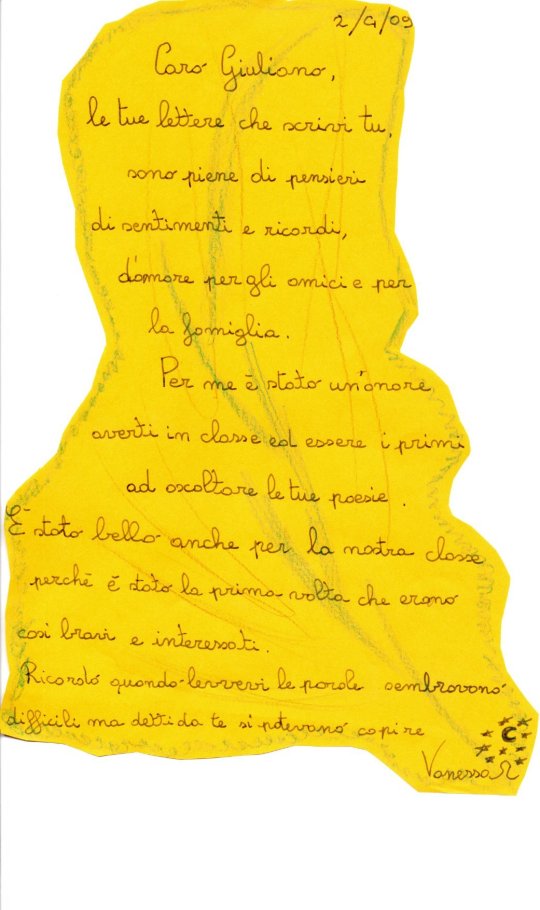 2/4/09
Caro Giuliano,
le tue lettere che scrivi tu,
sono piene di pensieri
di sentimenti e ricordi,
d'amore per gli amici e per
la famiglia.
Per me è stato un'onore
averti in classe ed essere i primi
ad ascoltare le tue poesie.
È stato bello anche per la nostra classe
perchè è stato la prima volta che erano
così bravi e interessati.
Ricordo quando levvevi le parole sembravano
difficili ma detti da te si potevano capire
Vanessa